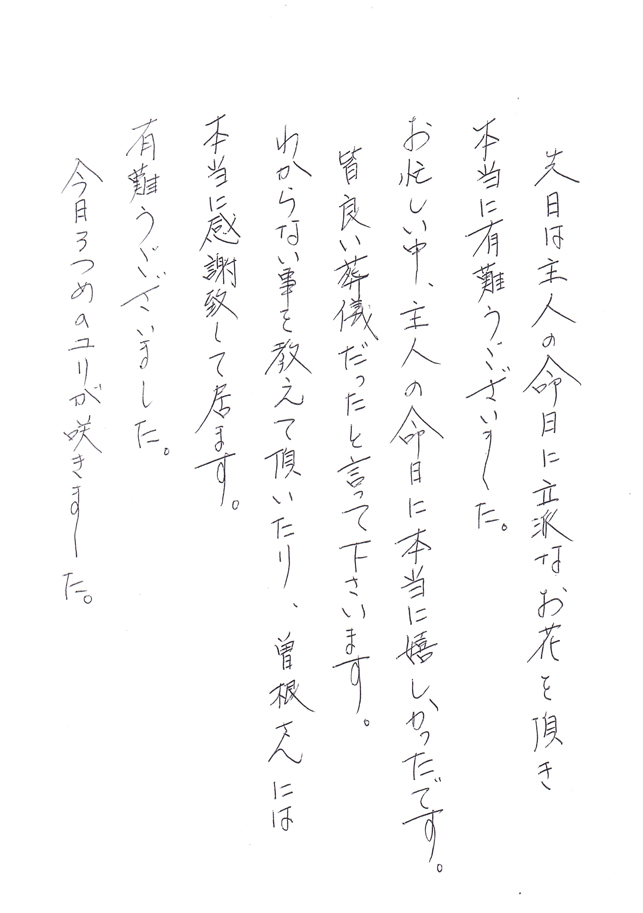 先日は主人の命日に立派なお花を頂き
本当に有難うございました。
お忙しい中、主人の命日に本当に嬉しかったです。
皆良い葬儀だったと言って下さいます。
わからない事を教えて頂いたり、曽根さんには
本当に感謝致して居ます。
有難うございました。
今日3つめのユリが咲きました。